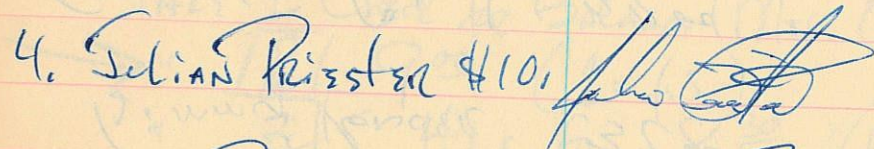 4. Julian Priester $10, Julian Priester